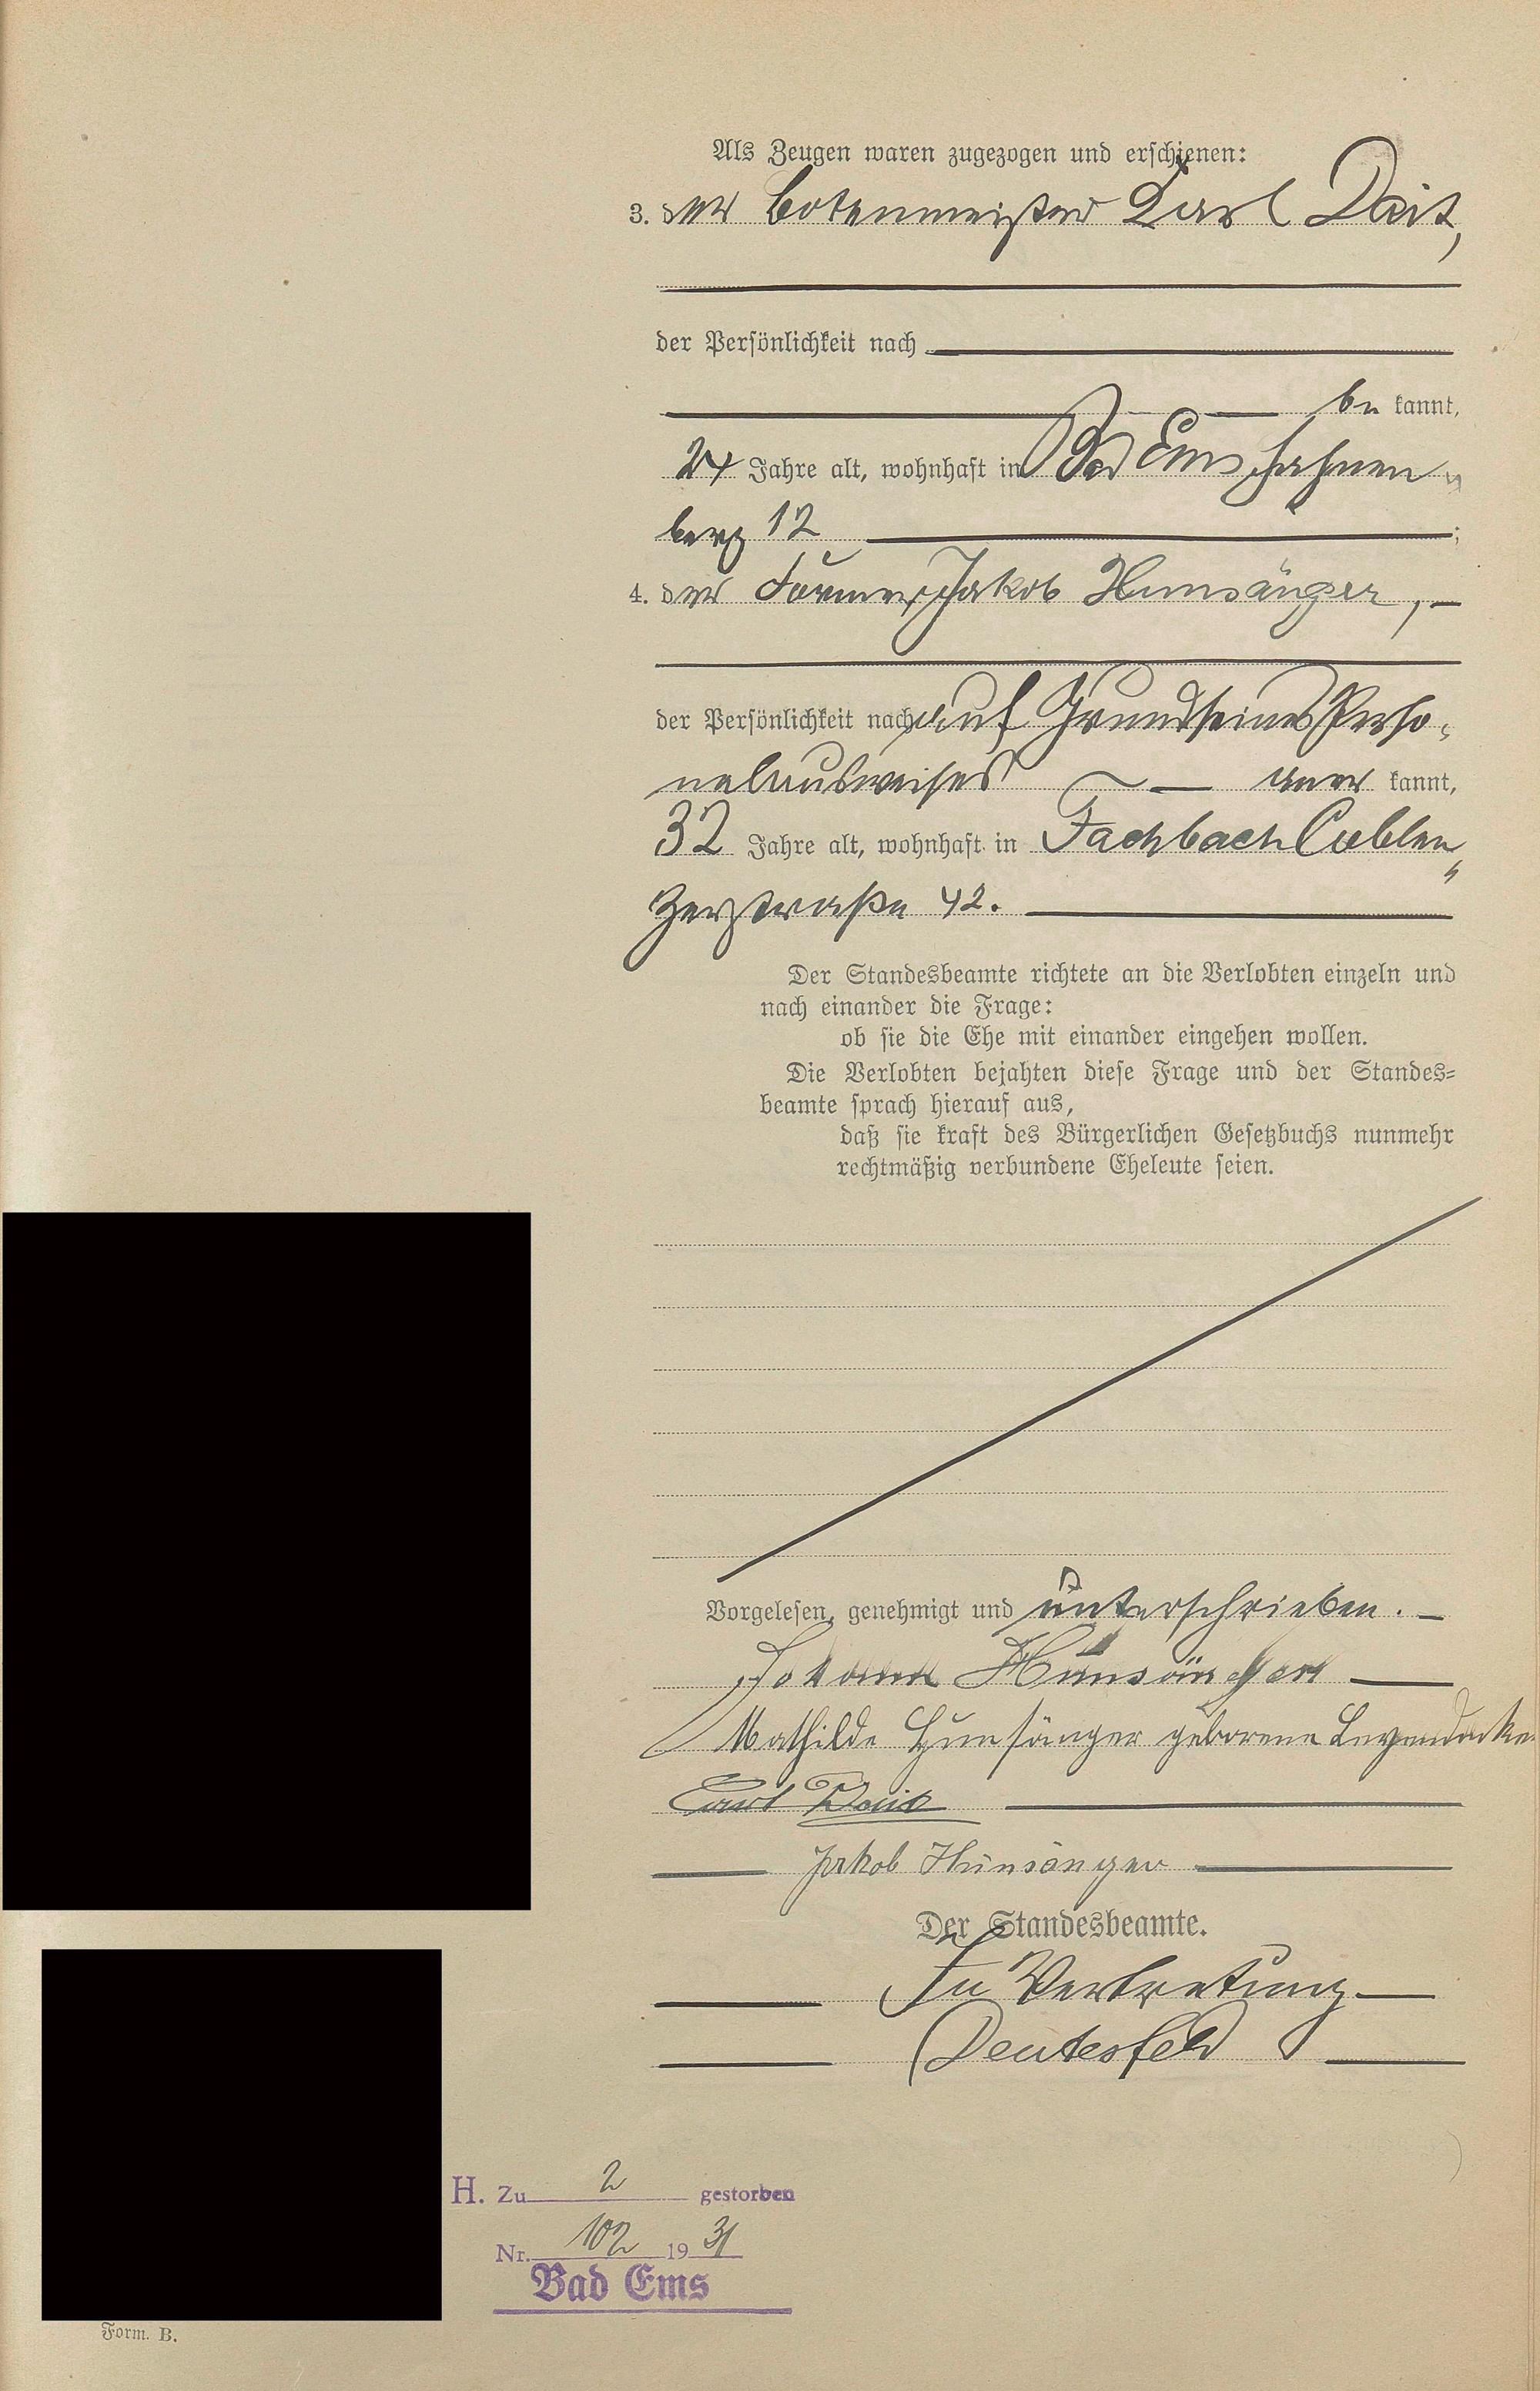 Als Zeugen waren zugezogen und erschienen:
3. der Botenmeister Karl Deis,
der Persönlichkeit nach
be kannt,
24 Jahre alt, wohnhaft in Bad Ems, Hahnen„
berg 12 ;
4. der Former Jakob Hunsänger,
der Persönlichkeit nach auf Grund seines Perso„
nalausweises aner kannt,
32 Jahre alt, wohnhaft in Fachbach Coblen„
zerstraße 42.
Der Standesbeamte richtete an die Verlobten einzeln und
nach einander die Frage:
ob sie die Ehe mit einander eingehen wollen.
Die Verlobten bejahten diese Frage und der Standes=
beamte sprach hierauf aus,
daß sie kraft des Bürgerlichen Gesetzbuchs nunmehr
rechtmäßig verbundene Eheleute seien.
Vorgelesen, genehmigt und unterschrieben.
Johann Hunsänger
Mathilde Hunsänger geborene
Carl
Jakob Hunsänger
Der Standesbeamte.
In Vertretung
Deutesfeld
H. Zu 2 gestorben
Nr. 102 19 31
Bad Ems
Form. B.